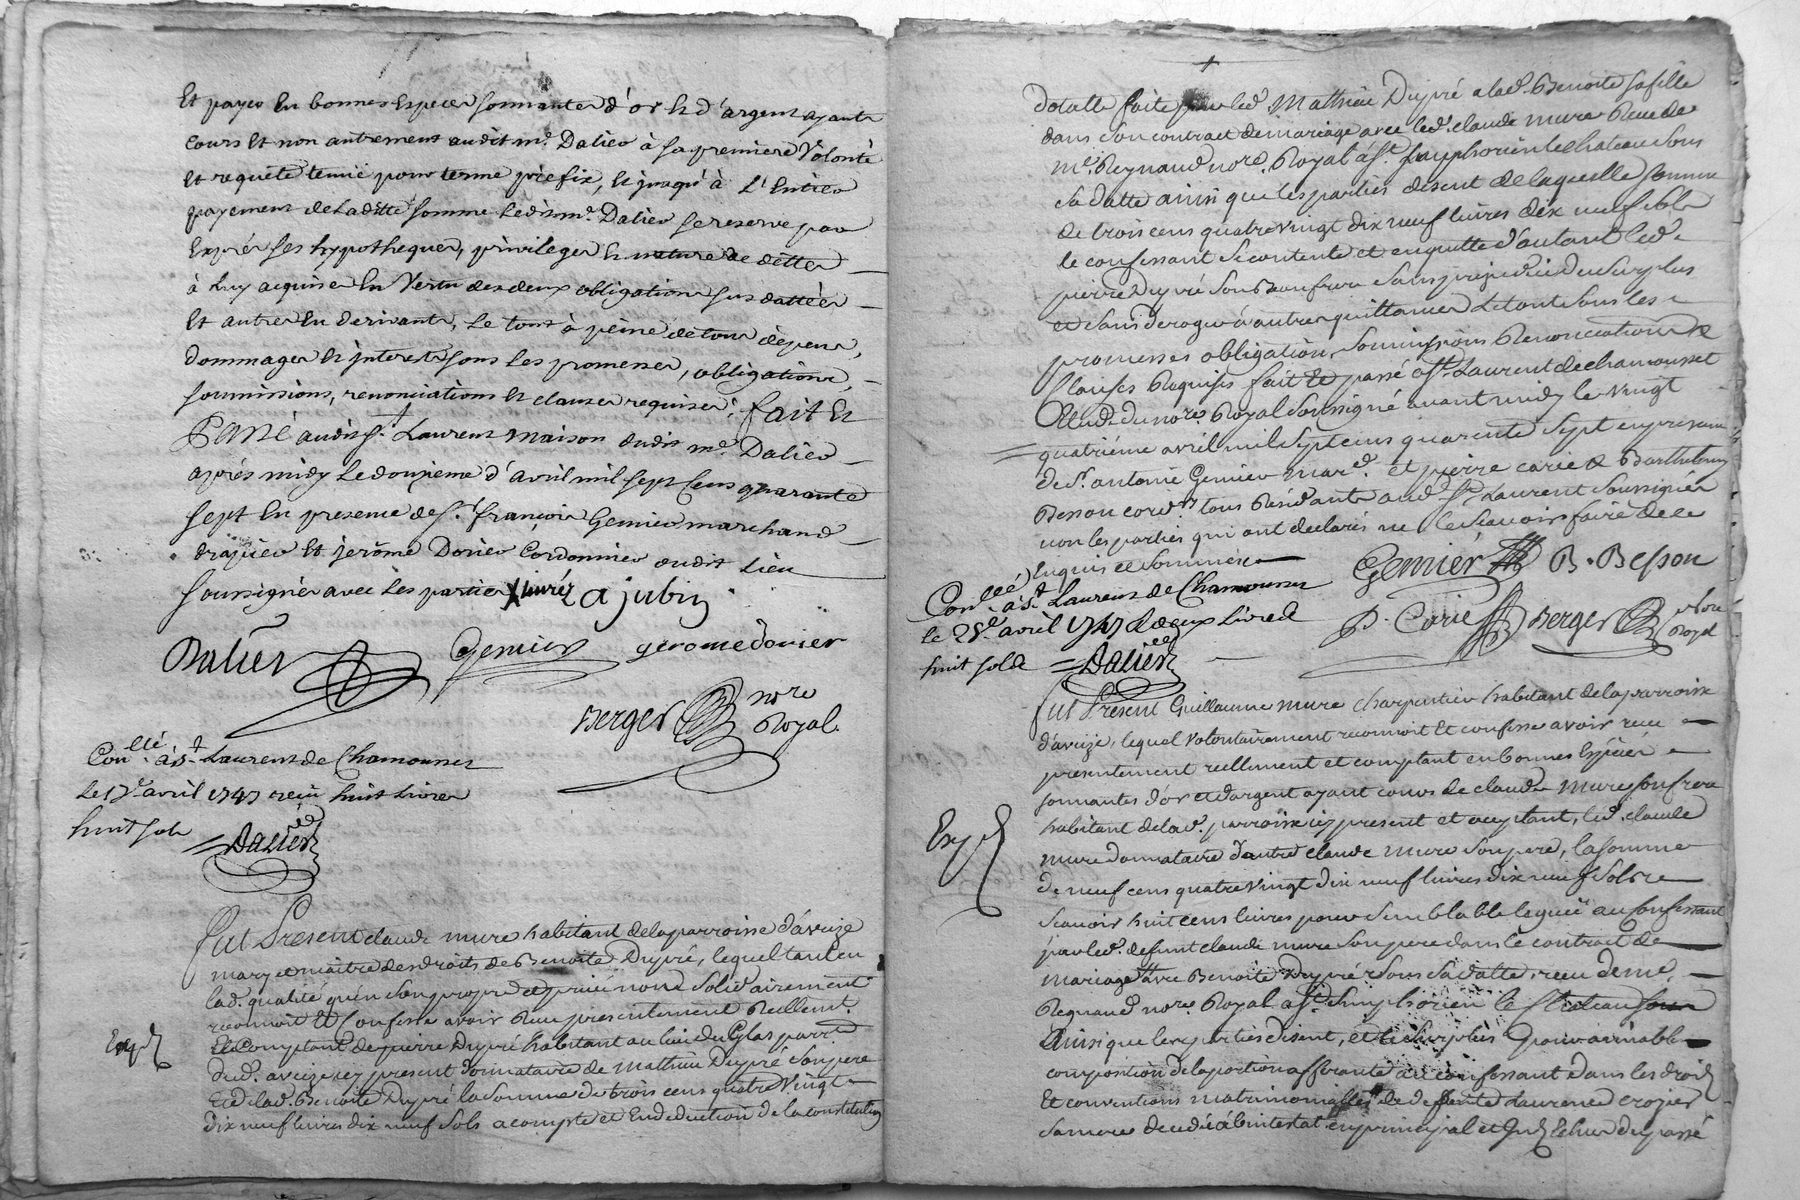 Et payer En bonnes Especes sonnantes d'or Et d'argent ayants
cours Et non autrement audit mr. Dalier à sa premiere Volonté
Et requête tenüe pour terme préfix, Et jusqu'à L'Entier
payement de Laditte somme Ledit mr. Dalier se reserve par
Exprés ses hypotheques, privileges Et nature de dettes
à Luy acquises En Vertu des deux obligations sus dattées
Et autres En derivants, Le tout à peine de tous dépens,
dommages Et interests sous Les promesses, obligations,
soumissions, renonciations Et clauses requises. fait Et
Passé audit St. Laurens maison dudit mr. Dalier
après midy Le douzieme d'avril mil sept Cens quarante
sept En presence de Sr. françois Genier marchand
drapier Et jerôme Dorier Cordonnier dudit Lieu
soussignés avec Les parties
a jubin
Dalier Genier gerome dorier
Berger nore Royal.
Conllé. à St. Laurens de Chamousset
Le 17e. avril 1747 reçu huit Livres
huit sols
Dalier
Fut Present claude mure habitant de la parroisse d'aveize
mary et maitre des droits de Benoite Dupré, lequel tant en
lad. qualité qu'en son propre et privé nom solidairement
reconnoit Et Confesse avoir Reçu presentement Reellemt.
Et Comptant de pierre Dupré habitant au lieu du Glas parr.
dud. aveize icy present donnataire de Mathieu Dupré son pere
Et de lad. Benoite Dupré la somme de trois cens quatre Vingt
dix neuf livres dix neuf sols a compte et En deduction de la constitution
Exp
dotalle faite par led. Mathieu Dupré a lad. Benoite sa fille
dans son contract de mariage avec led. claude mure Receu de
Me. Reynaud nore. Royal à St. simphorien le chateau sous
sa datte ainsi que les parties disent de laquelle somme
de trois cens quatre vingt dix neuf livres dix neuf sols
le confessant se contente et en quitte d'autant led.
pierre Dupré son Beaufrere sans prejudice du surplus
et sans deroger à autres quittances Le tout sous les
promesses obligation, soumissions Renonciations &
Clauses Requises fait Et passé à St. Laurent de chamousset
Etude du nore. Royal soussigné avant midy le vingt
quatriéme avril mil sept cens quarente sept en presence
de Sr. antoine Genier mard. et pierre carié & Barthelemy
Besson cordrs. tous Residants aud. St. Laurent soussignés
non les parties qui ont declarés ne le sçavoir faire de ce
Enquis et sommés
Genier B. Besson
P. Carié Berger Nore Royal
Conllé à St. Laurens de Chamousset
le 28e. avril 1747 R deux Livres
huit sols Dalier
Fut Present Guillaume mure charpentier habitant de la parroisse
d'aveize, lequel Volontairement reconnoit Et confesse avoir receu
presentement reellement et comptant en bonnes Espéces
sonnantes d'or et d'argent ayant cours de claude Mure son frere
habitant de lad. parroisse icy present et aceptant, led. claude
mure donnataire d'autre claude mure son pere, la somme
de neuf cens quatre Vingt dix neuf livres dix neuf sols
Scavoir huit cens livres pour semblable leguée au Confessant
par led. defunt claude mure son pere dans le contract de
Mariage avec Benoite Dupré sous sa datte, receu de me.
Regnaud nore. Royal à St. simphorien le Chateau
Ainsi que les parties disent, et le surplus pour aimable
composition de la portion afferante au confessant dans les droits
Et conventions matrimonialles de defunte Laurence crozier
sa mere decedée ab intestat en principal et Interets du passé
Exp